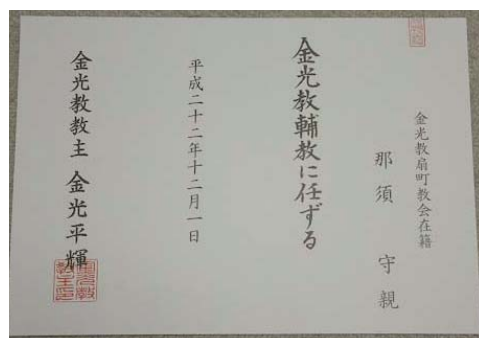 金光教扇町教会在籍
那須 守親
金光教輔教に任ずる
平成二十二年十二月一日
金光教教主 金光平輝